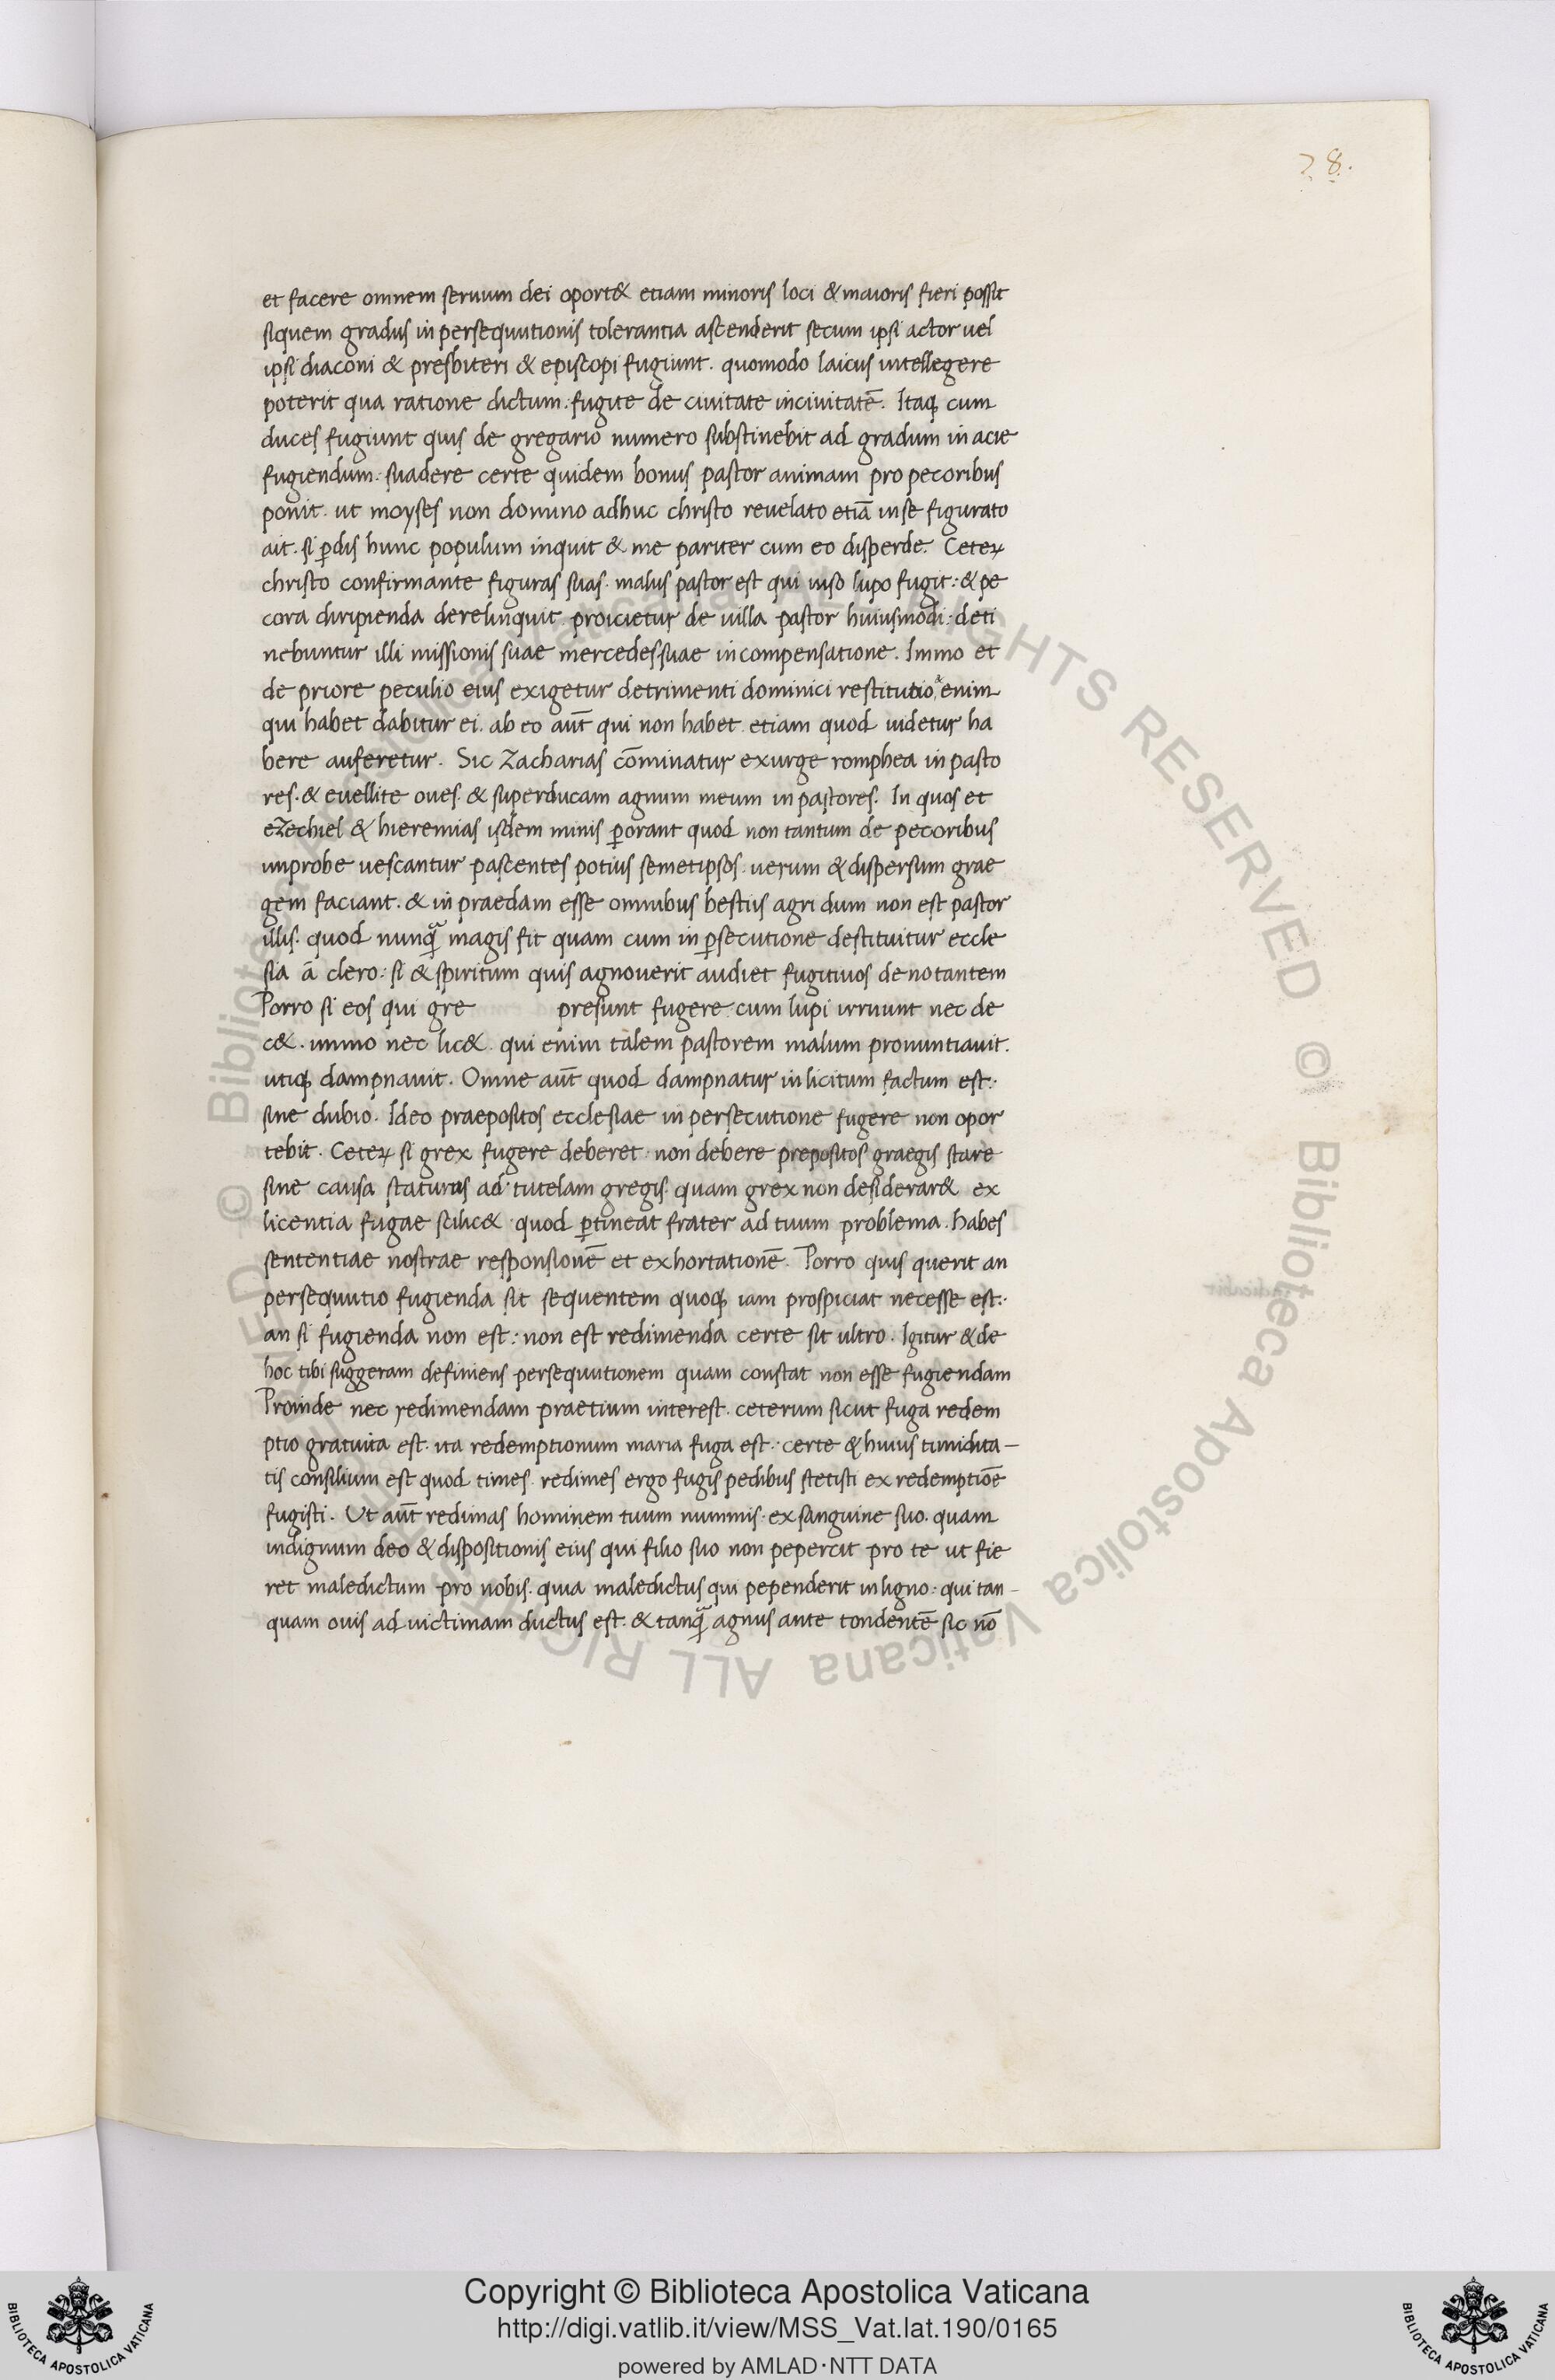 78.
et facere omnem seruum dei oport& etiam minoris loci & maioris fieri possit
siquem gradus in persequutionis tolerantia ascenderit secum ipsi actor uel
ipsi diaconi & presbiteri & episcopi fugiunt. quomodo laicus intellegere
poterit qua ratione dictum. fugite de ciuitate inciuitatē. Itaq; cum
duces fugiunt quis de gregario numero substinebit ad gradum in acie
fugiendum. suadere certe quidem bonus pastor animam pro pecoribus
ponit. ut moyses non domino adhuc christo reuelato etiā inse figurato
ait. si p̄dis hunc populum inquit & me pariter cum eo disperde. Ceteꝝ
christo confirmante figuras suas. malus pastor est qui uiso lupo fugit: & pe
cora diripienda derelinquit. proicietur de uilla pastor huiusmodi: deti
nebuntur illi missionis suae mercedes suae in compensatione. Immo et
de priore peculio eius exigetur detrimenti dominici restitutio enim
qui habet dabitur ei. ab eo aūt qui non habet. etiam quod uidetur ha
bere auferetur. Sic Zacharias cōminatur exurge romphea in pasto
res. & euellite oues. & superducam agnum meum in pastores. In quos et
eZechiel & hieremias isdem minis p̄orant quod non tantum de pecoribus
improbe uescantur pascentes potius semetipsos. uerum & dispersum grae
gem faciant. & in praedam esse omnibus bestiis agri dum non est pastor
illis. quod nunq̄ magis fit quam cum in p̄secutione destituitur eccle
sia ā clero: si & spiritum quis agnouerit audiet fugitiuos denotantem
Porro si eos qui gre presunt fugere cum lupi irruunt nec de
c&. immo nec lic&. qui enim talem pastorem malum pronuntiauit.
utiq; dampnauit. Omne aūt quod dampnatur inlicitum factum est.
sine dubio. Ideo praepositos ecclesiae in persecutione fugere non opor
tebit. Ceteꝝ si grex fugere deberet. non debere prepositos graegis stare
sine causa staturus ad tutelam gregis. quam grex non desiderar& ex
licentia fugae scilic& quod p̄tineat frater ad tuum problema. habes
sententiae nostrae responsionē et exhortationē. Porro quis querit an
persequutio fugienda sit sequentem quoq; iam prospiciat necesse est.
an si fugienda non est: non est redimenda certe sit ultro. Igitur & de
hoc tibi suggeram definiens persequutionem quam constat non esse fugiendam
Proinde nec redimendam praetium interest. ceterum sicut fuga redem
ptio gratuita est. ita redemptionum maria fuga est. certe & huius timidita-
tis consilium est quod times. redimes ergo fugis pedibus stetisti ex redemptiōe
fugisti. Ut aūt redimas hominem tuum nummis. ex sanguine suo. quam
indignum deo & dispositionis eius qui filio suo non pepercit pro te ut fie
ret maledictum pro nobis. quia maledictus qui pependerit in ligno: qui tan-
quam ouis ad uictimam ductus est. & tanq̄ agnus ante tondentē sic nō
© Biblioteca Apostolica Vaticana ALL RIGHTS RESERVED © Biblioteca Apostolica Vaticana ALL RIGHTS RESERVED
Copyright © Biblioteca Apostolica Vaticana
http://digi.vatlib.it/view/MSS_Vat.lat.190/0165
powered by AMLAD·NTT DATA
BIBLIOTECA APOSTOLICA VATICANA
BIBLIOTECA APOSTOLICA VATICANA